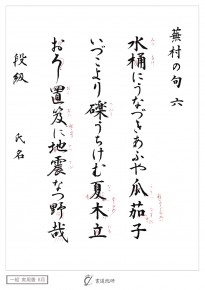 蕪村の句 六
水桶にうなづきあふや瓜茄子
いづこより礫うちけむ夏木立
おろし置笈に地震なつ野哉
段級 氏名
書道教師